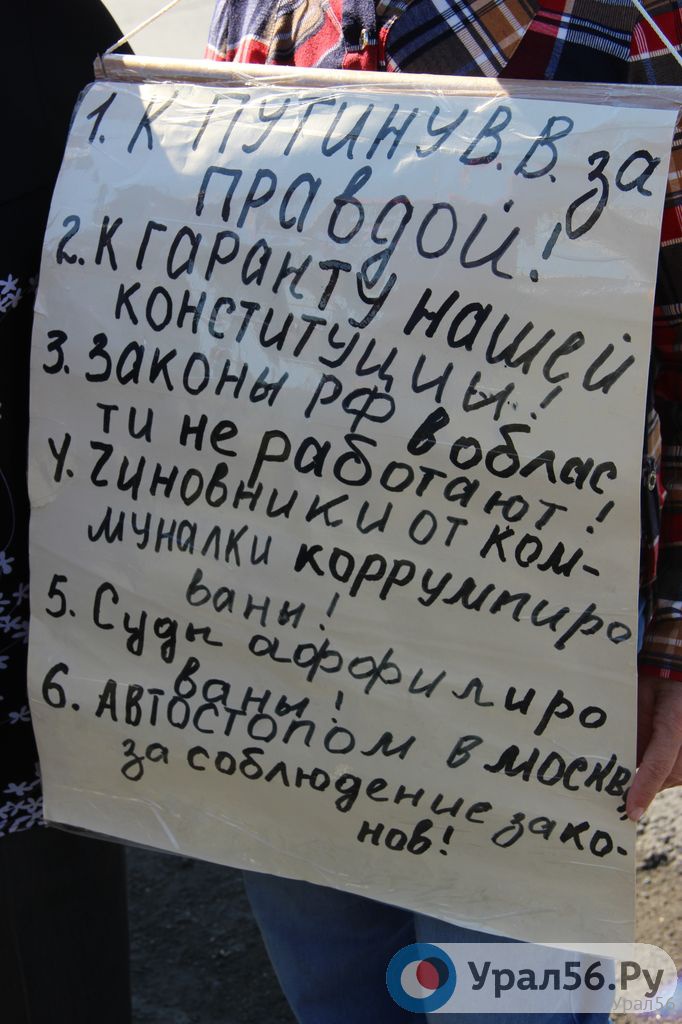 1. К ПУТИНУ В.В. за
правдой!
2. К гаранту нашей
конституции!
3. Законы РФ в облас
ти не работают!
4. Чиновники от ком-
муналки коррумпиро
ваны!
5. Суды аффилиро
ваны!
6. Автостопом в Москву
за соблюдение зако-
нов!
Урал56.Ру
Урал56